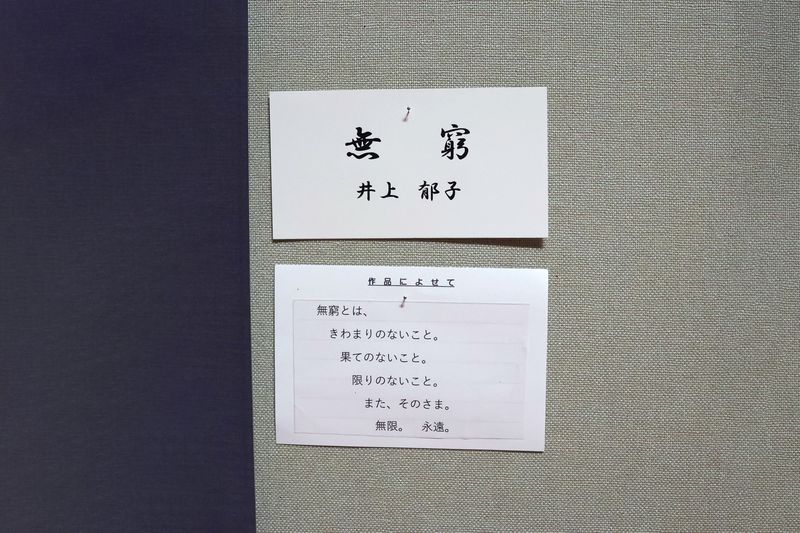 無窮
井上 郁子
作品によせて
無窮とは、
きわまりのないこと。
果てのないこと。
限りのないこと。
また、そのさま。
無限。 永遠。